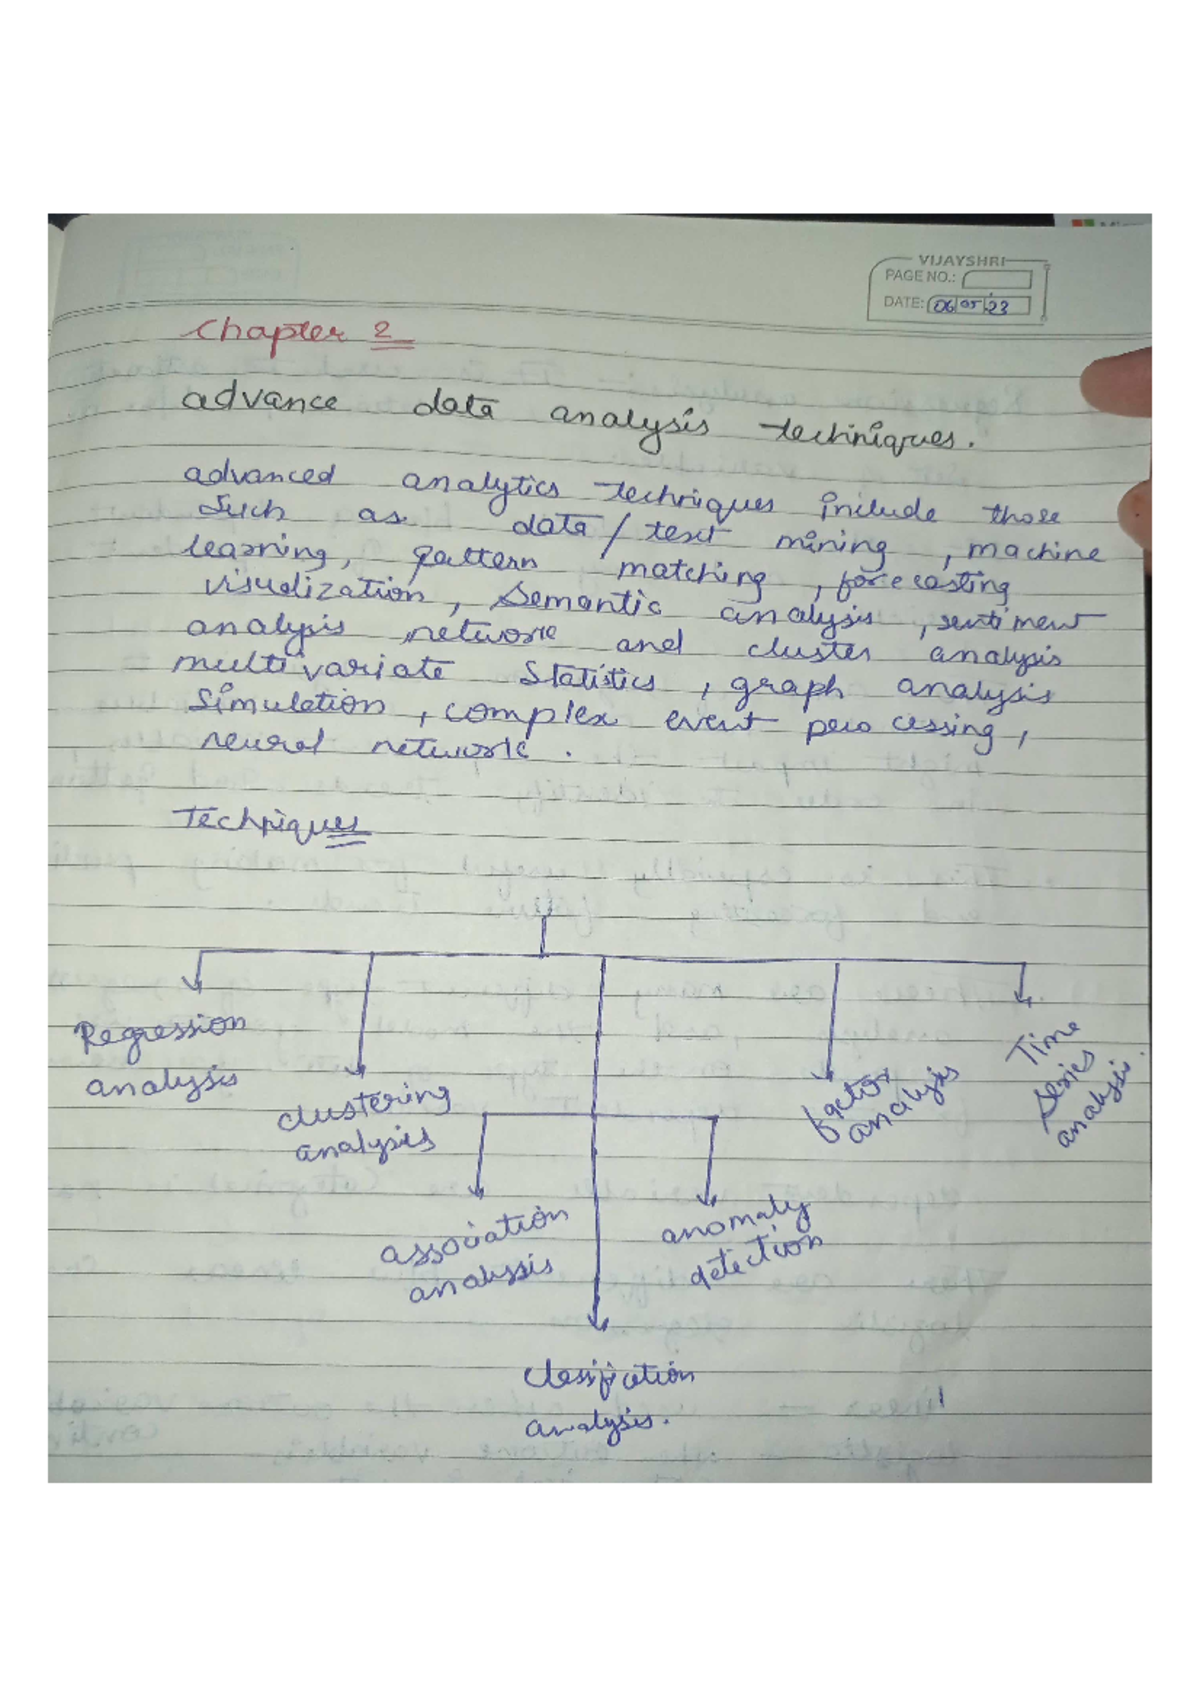 VIJAYSHRI
PAGE NO.:
DATE: 06 05 23
Chapter 2
advance data analysis techniques.
advanced analytics techniques include those
such as data/text mining, machine
learning, pattern matching, forecasting
visualization, semantic analysis, sentiment
analysis network and cluster analysis
multivariate statistics, graph analysis
simulation, complex event processing,
neural network.
Techniques
Regression
analysis
clustering
analysis
association
analysis
Classification
analysis.
anomaly
detection
factor
analysis
Time
series
analysis.